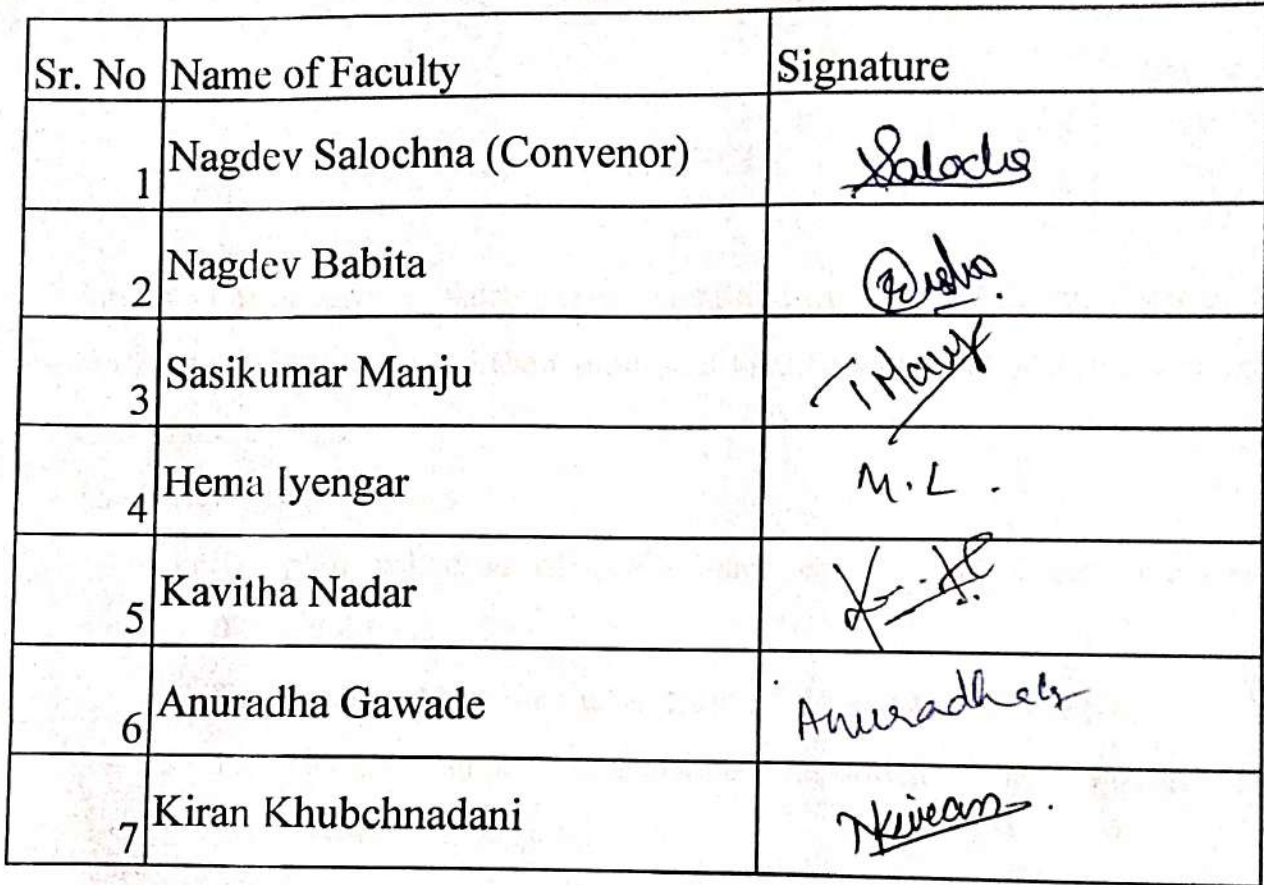 Sr. No Name of Faculty Signature
1 Nagdev Salochna (Convenor)
2 Nagdev Babita
3 Sasikumar Manju
4 Hema Iyengar M. L .
5 Kavitha Nadar
6 Anuradha Gawade
7 Kiran Khubchnadani